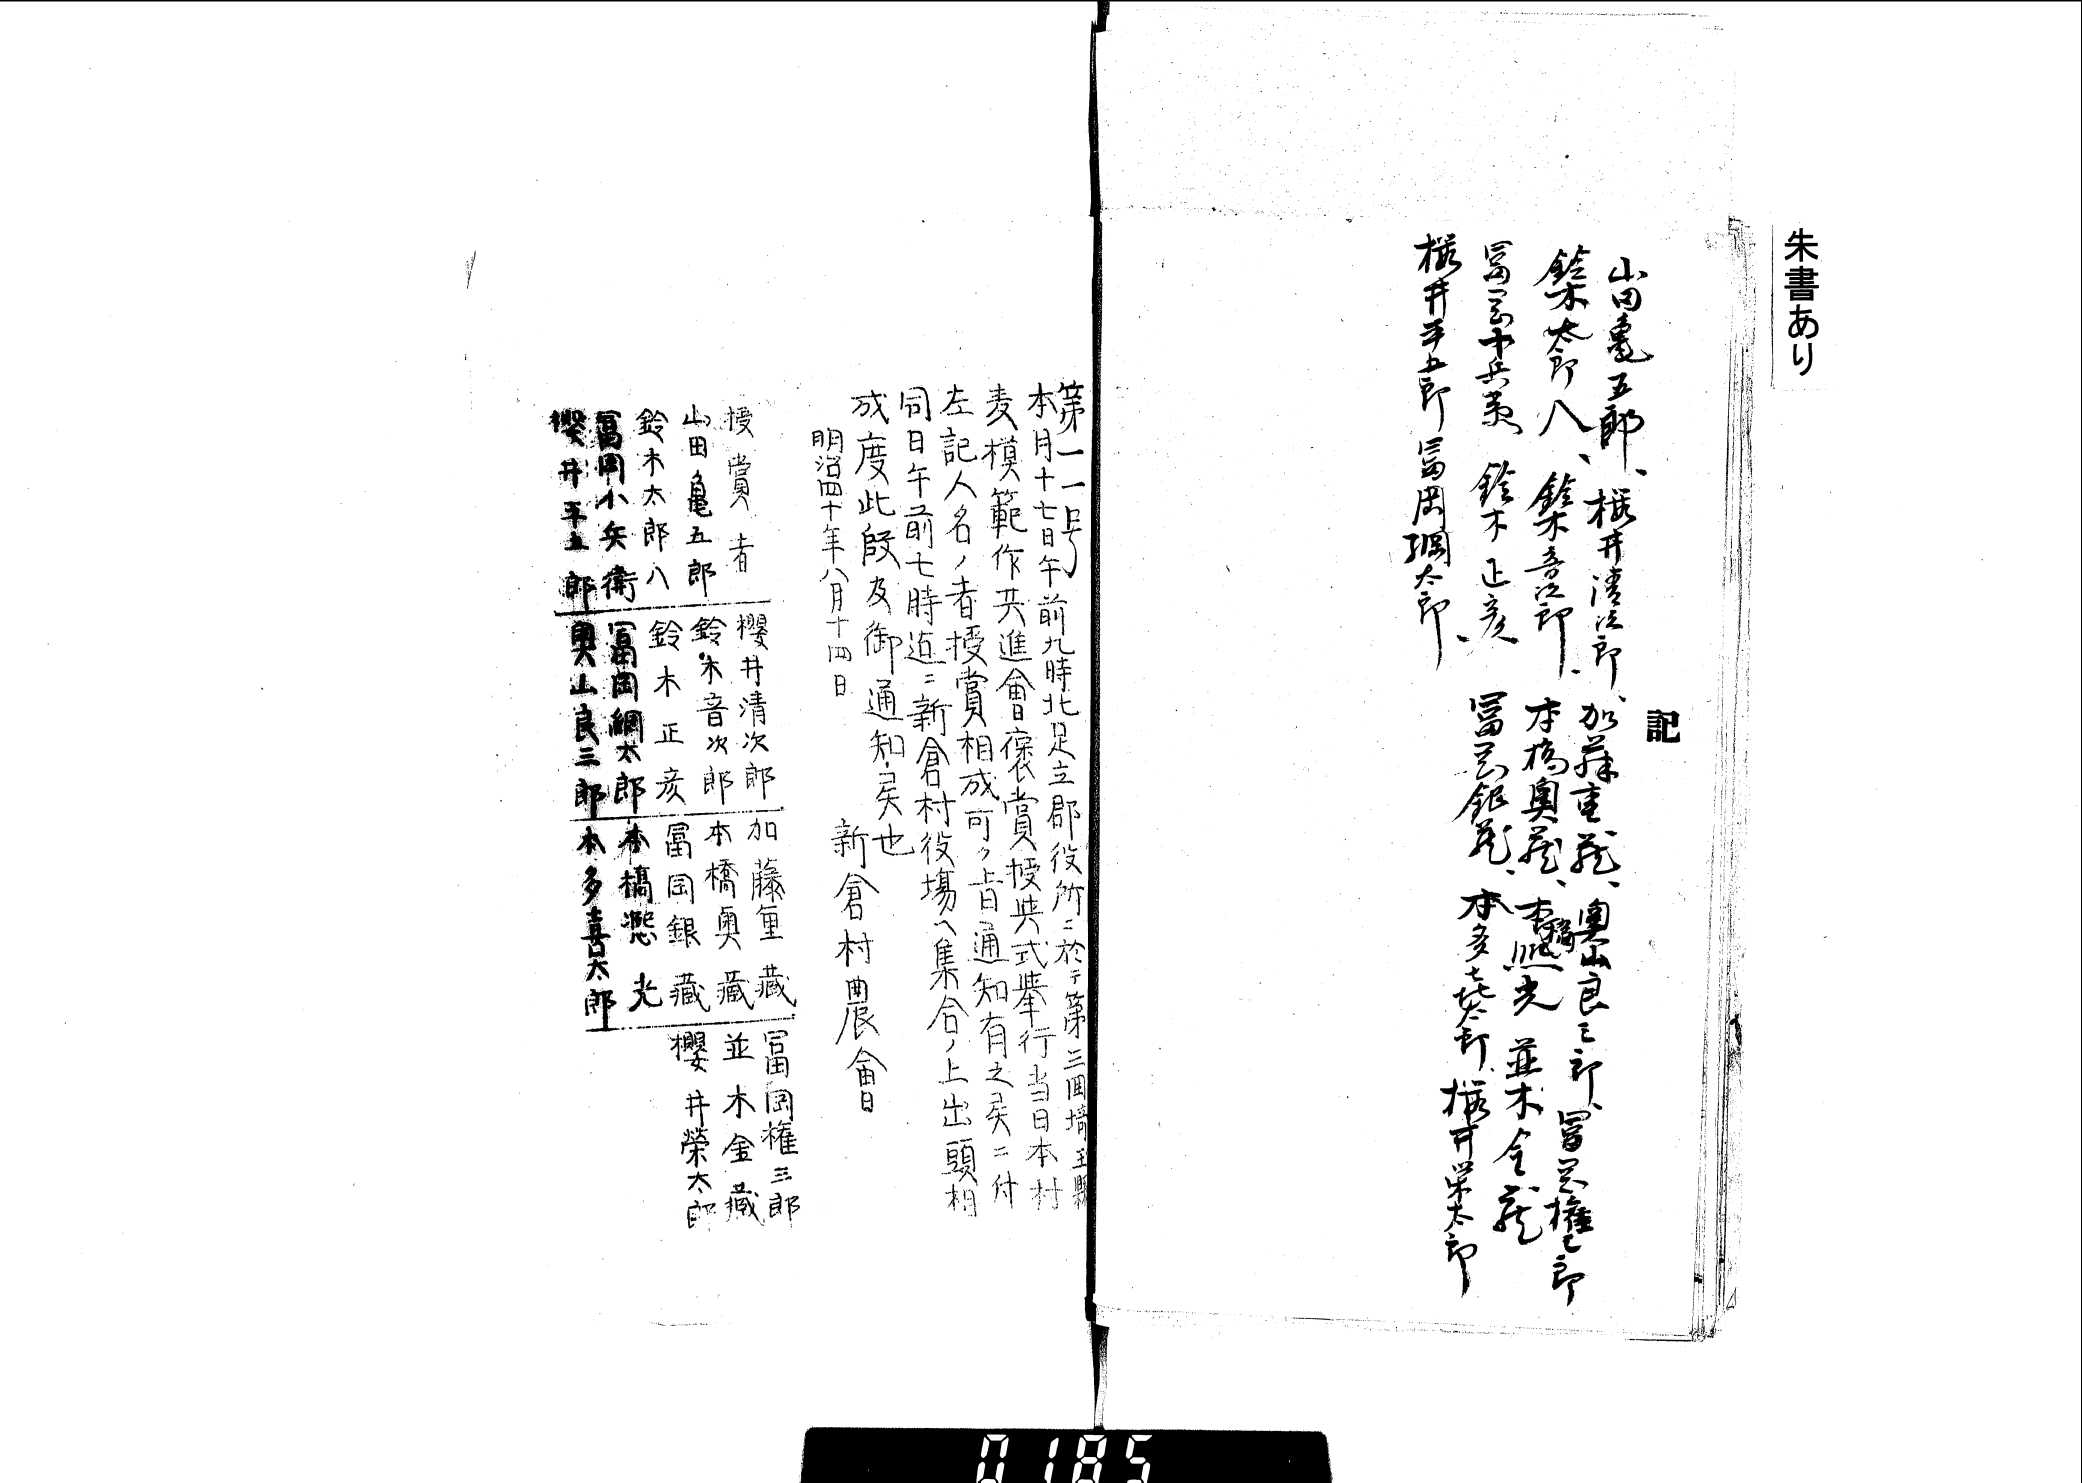 朱書あり
記
山田亀五郎、櫻井清次郎、加藤重蔵、奥山良三郎、冨岡権三郎
鈴木太郎八、鈴木音次郎、本橋奥蔵、本橋熈光 並木金蔵
冨岡小兵衛 鈴木正彦 冨岡銀蔵、本多喜太郎、櫻井栄太郎
櫻井平五郎 冨岡綱太郎、
第一一号
本月十七日午前九時北足立郡役所ニ於テ第三回埼玉縣
麦模範作共進會褒賞授與式挙行当日本村
左記人名ノ者授賞相成可ク旨通知有之候ニ付
同日午前七時迄ニ新倉村役場ヘ集合ノ上出頭相
成度此段及御通知候也
明治四十年八月十四日
新倉村農会
授賞者
山田亀五郎
鈴木太郎八
冨岡小兵衛
櫻井平五郎
櫻井清次郎
鈴木音次郎
鈴木正彦
冨岡綱太郎
奥山良三郎
加藤重藏
本橋奥藏
冨岡銀藏
本橋熈光
本多喜太郎
冨岡権三郎
並木金藏
櫻井榮太郎
0185